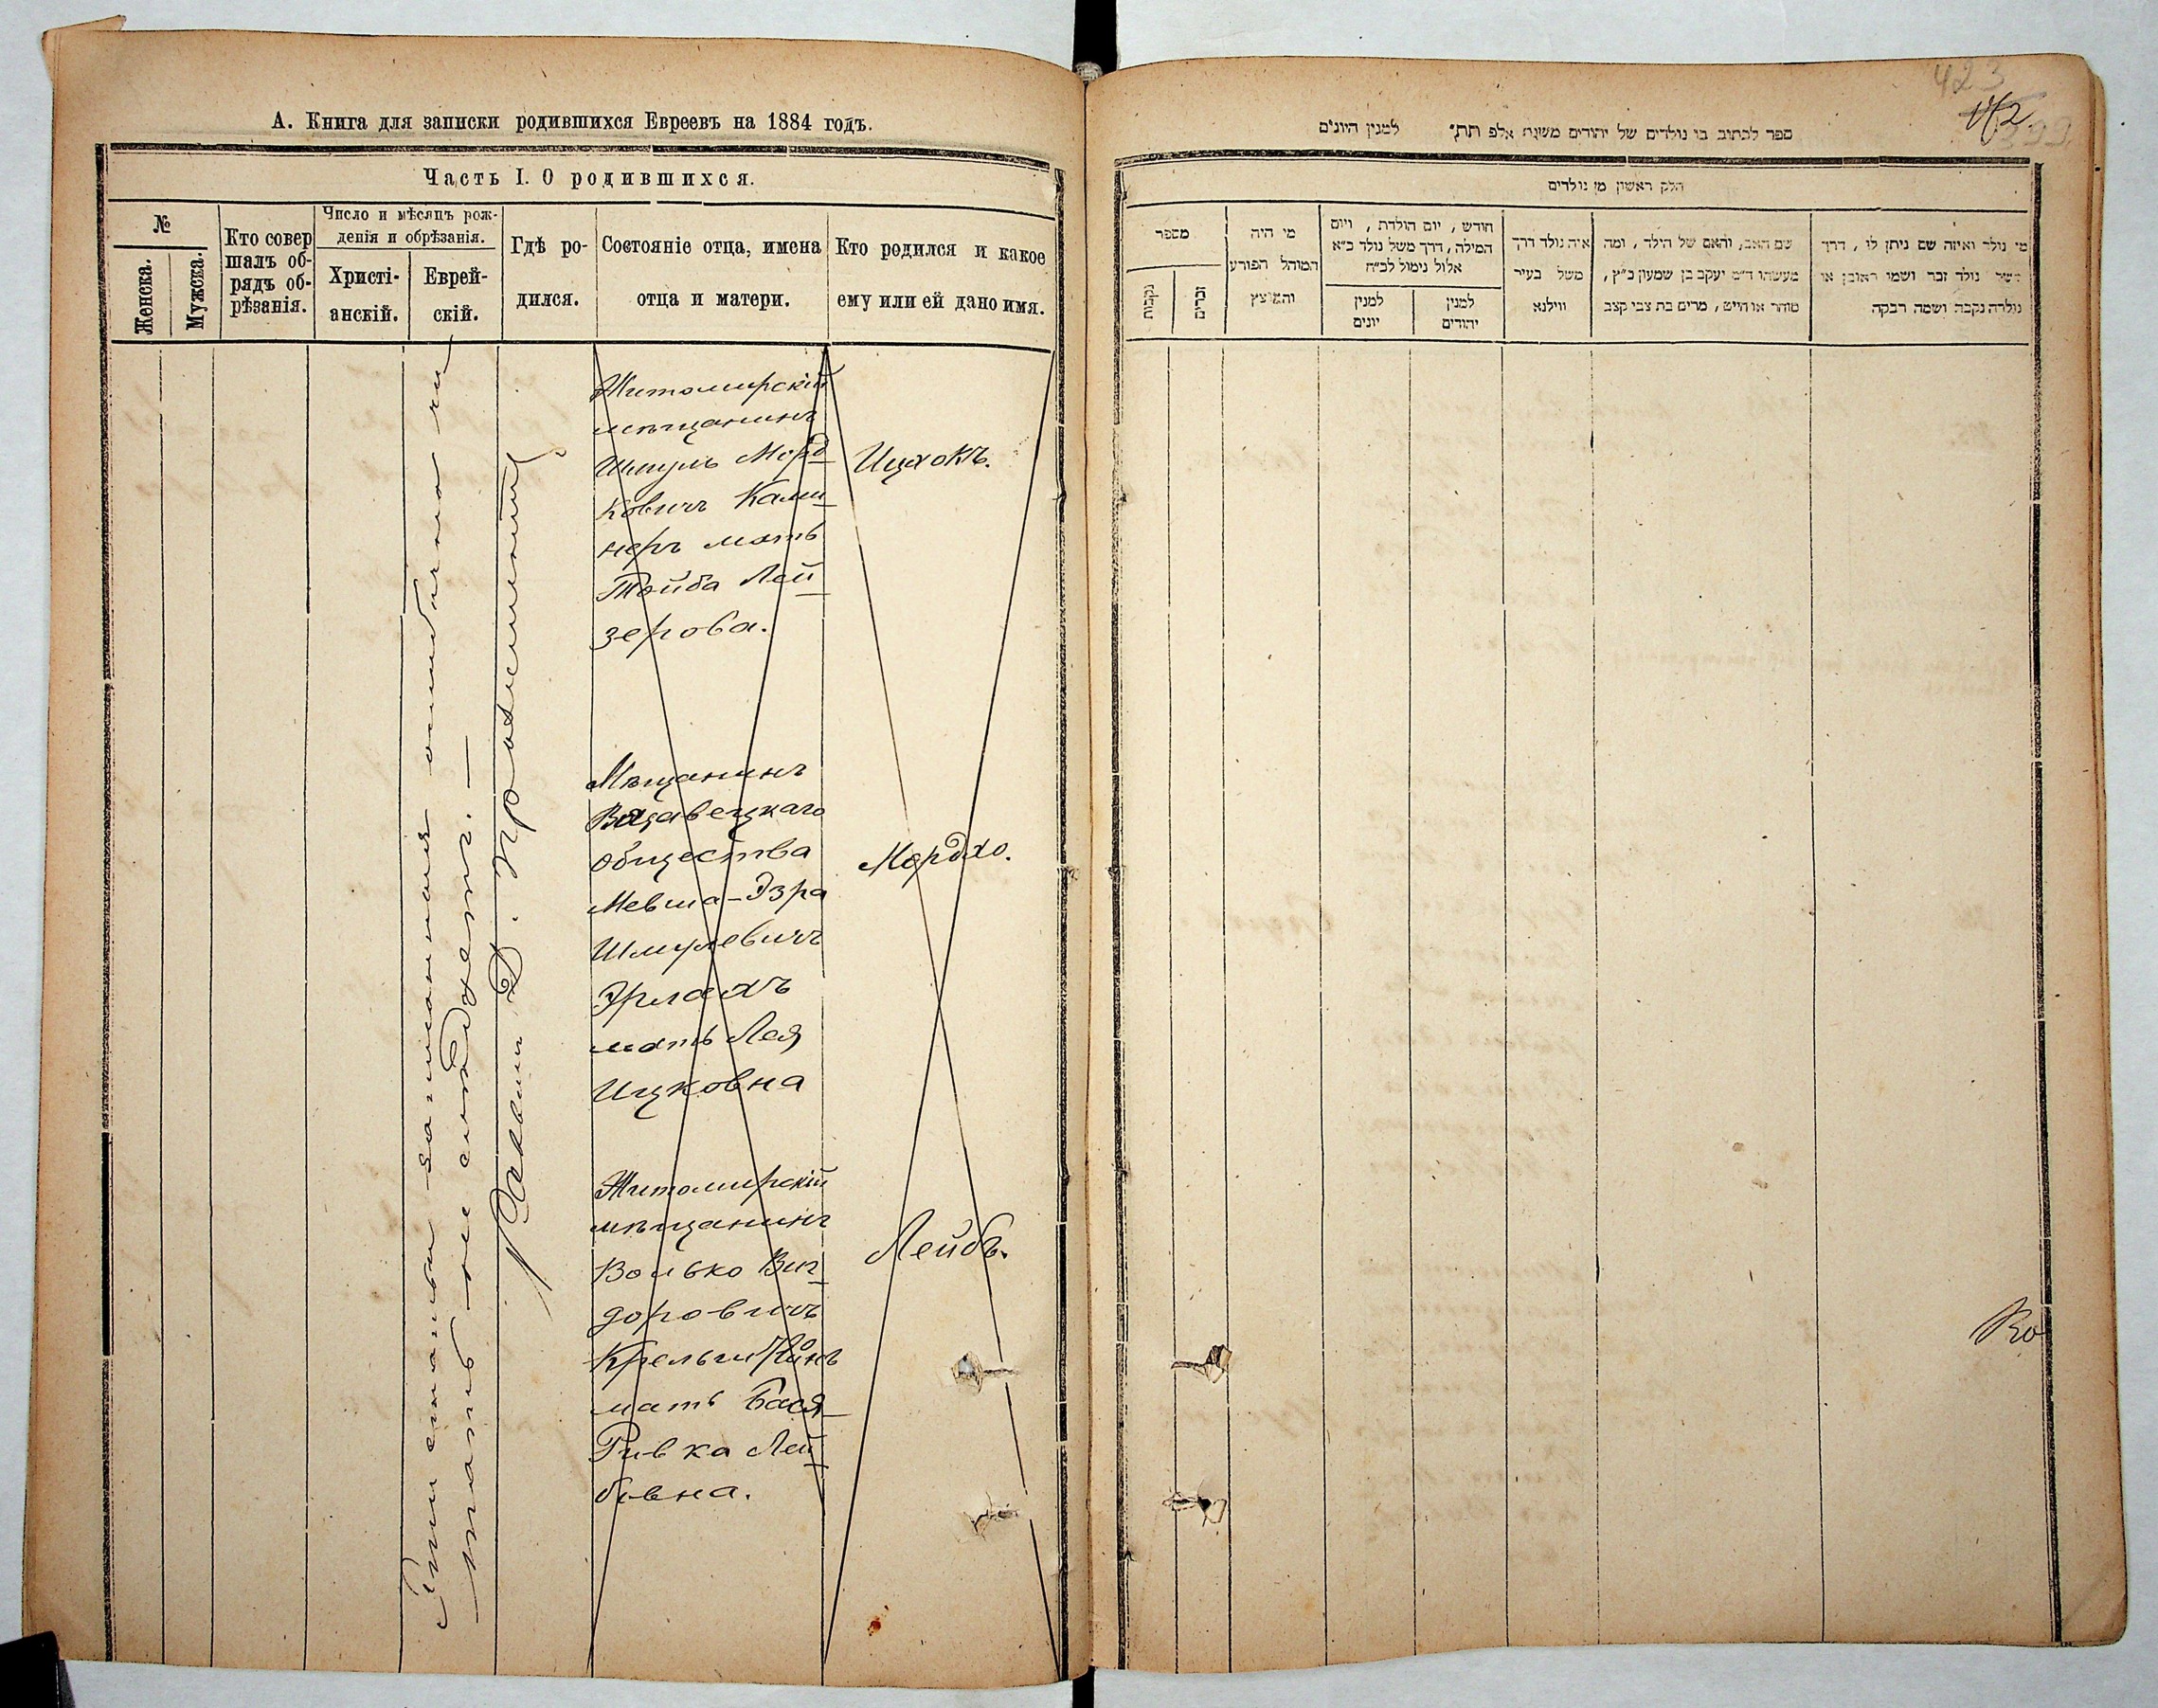 А. Книга для записки родившихся Евреевъ на 1884 годъ.
Часть I. О родившихся.
№
Женска.
Мужска.
Кто совер
шалъ об-
рядъ об-
рѣзанія.
Число и мѣсяцъ рож-
денія и обрѣзанія.
Христі-
анскій.
Еврей-
скій.
Гдѣ ро-
дился.
Состояніе отца, имена
отца и матери.
Кто родился и какое
ему или ей дано имя.
Житомирскій
мѣщанинъ
Шмуль Морд
ковичъ Ками
неръ мать
Тойба Лей
зерова.
Ицхокъ.
Мѣщанинъ
общества
Мевша-Эзра
Шмулевичъ
Эрлахъ
мать Лея
Ицковна
Мордхо.
Житомирскій
мѣщанинъ
Волько Виг
доровичъ
мать Бася
Ривка Лей
бовна.
Лейбъ.
Эти статьи записанныя ошибочно чи
тать не слѣдуетъ. —
Раввинъ
423
42
399.
ספר לכתוב בו נולדים של יהודים משנת אלפ תת״ למנין היונים
חלק ראשון מן נולדים
מספר
נקבות
זכרים
מי היה
המוהל הפורע
והמוצץ
חודש, יום הולדת, ויום
המילה, דרך משל נולד כ״א
אלול נימול לכ״ח
למנין
יונים
למנין
יהודים
איה נולד דרך
משל בעיר
ווילנא
שם האב, והאם של הילד, ומה
מעשהו ד״מ יעקב בן שמעון כ״ץ,
סוחר או חייט, מרים בת צבי קצב
מי נולד ואיזה שם ניתן לו, דרך
משל נולד זכר ושמו ראובן או
נולדה נקבה ושמה רבקה
Во